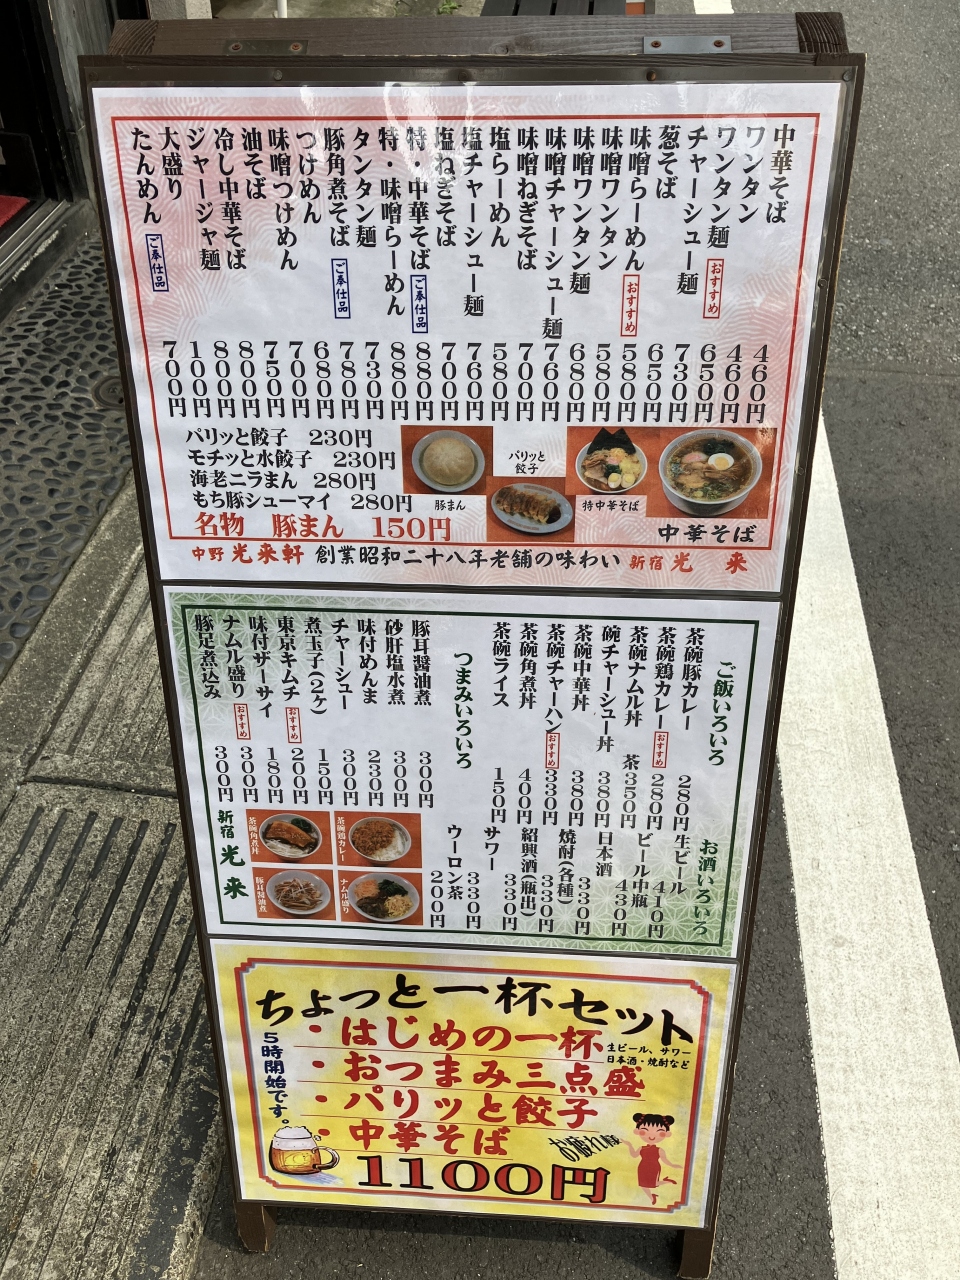 中華そば 460円
ワンタン 460円
ワンタン麺 おすすめ 650円
チャーシュー麺 730円
葱そば 650円
味噌らーめん おすすめ 580円
味噌ワンタン 580円
味噌ワンタン麺 680円
味噌チャーシュー麺 760円
味噌ねぎそば 700円
塩らーめん 580円
塩チャーシュー麺 760円
塩ねぎそば 700円
特・中華そば ご奉仕品 880円
特・味噌らーめん 880円
タンタン麺 730円
豚角煮そば ご奉仕品 780円
つけめん 680円
味噌つけめん 700円
油そば 750円
冷し中華そば 800円
ジャージャ麺 800円
大盛り 100円
たんめん ご奉仕品 700円
パリッと餃子 230円
モチッと水餃子 230円
海老ニラまん 280円
もち豚シューマイ 280円
名物 豚まん 150円
豚まん
パリッと
餃子
特中華そば
中華そば
中野 光来軒 創業昭和二十八年老舗の味わい 新宿 光 来
ご飯いろいろ
茶碗豚カレー 280円
茶碗鶏カレー おすすめ 280円
茶碗ナムル丼 350円
茶碗チャーシュー丼 380円
茶碗中華丼 380円
茶碗チャーハン おすすめ 330円
茶碗角煮丼 400円
茶碗ライス 150円
お酒いろいろ
生ビール 410円
ビール中瓶 430円
日本酒 330円
焼酎(各種) 330円
紹興酒(瓶出) 330円
サワー 330円
ウーロン茶 200円
つまみいろいろ
豚耳醤油煮 300円
砂肝塩水煮 300円
味付めんま 230円
チャーシュー 300円
煮玉子(2ヶ) 150円
東京キムチ おすすめ 200円
味付ザーサイ 180円
ナムル盛り おすすめ 300円
豚足煮込み 300円
茶碗鶏カレー
茶碗角煮丼
ナムル盛り
豚耳醤油煮
新宿 光 来
ちょっと一杯セット
・はじめの一杯
生ビール、サワー
日本酒・焼酎など
・おつまみ三点盛
・パリッと餃子
・中華そば
5時開始です。
1100円